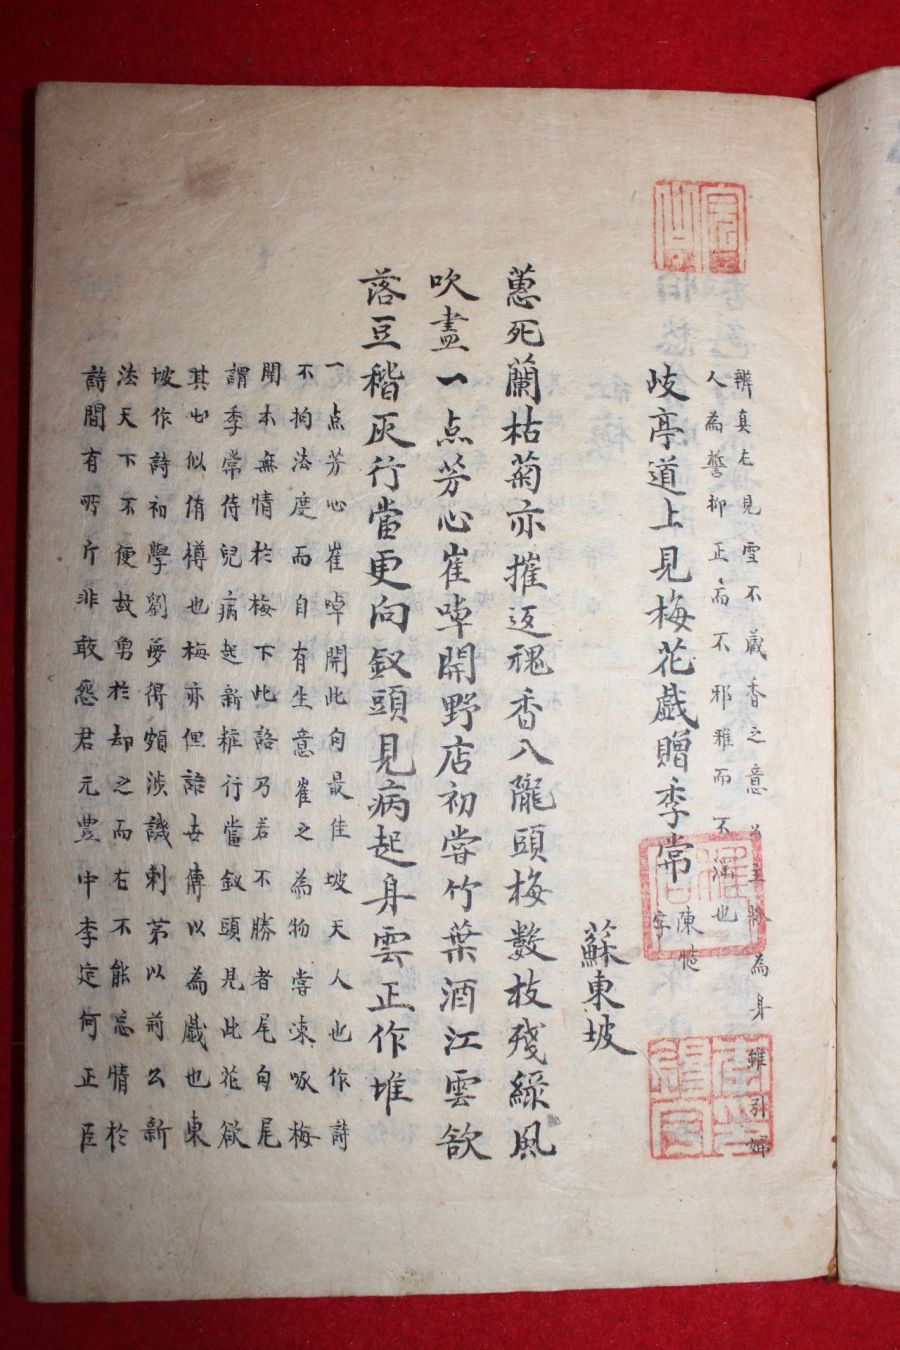 辨真尤見雪不蔵香之意 主 為身雖引婦
人為誓抑正而不邪雅而不 也
岐亭道上見梅花戯贈季常 陳慥字
蘇東坡
蕙死蘭枯菊亦摧返魂香入隴頭梅数枝殘綠風
吹盡一点芳心雀啅開野店初嘗竹葉酒江雲欲
落豆稭灰行當更向釵頭見病起烏雲正作堆
一点芳心雀啅開此句最佳坡天人也作詩
不拘法度而自有生意雀之為物嘗凍啄梅
開本無情於梅下此語乃若不勝者尾句尾
謂季常侍兒病起新粧行當釵頭見此花歛
其 似侑樽也梅亦俚語女傳以為戯也東
坡作詩初學劉夢得頗渉譏刺第以前公新
法天下不便故勇於却之而右不能忘情於
詩間有所斥非敢怨君元豊中李定何正臣